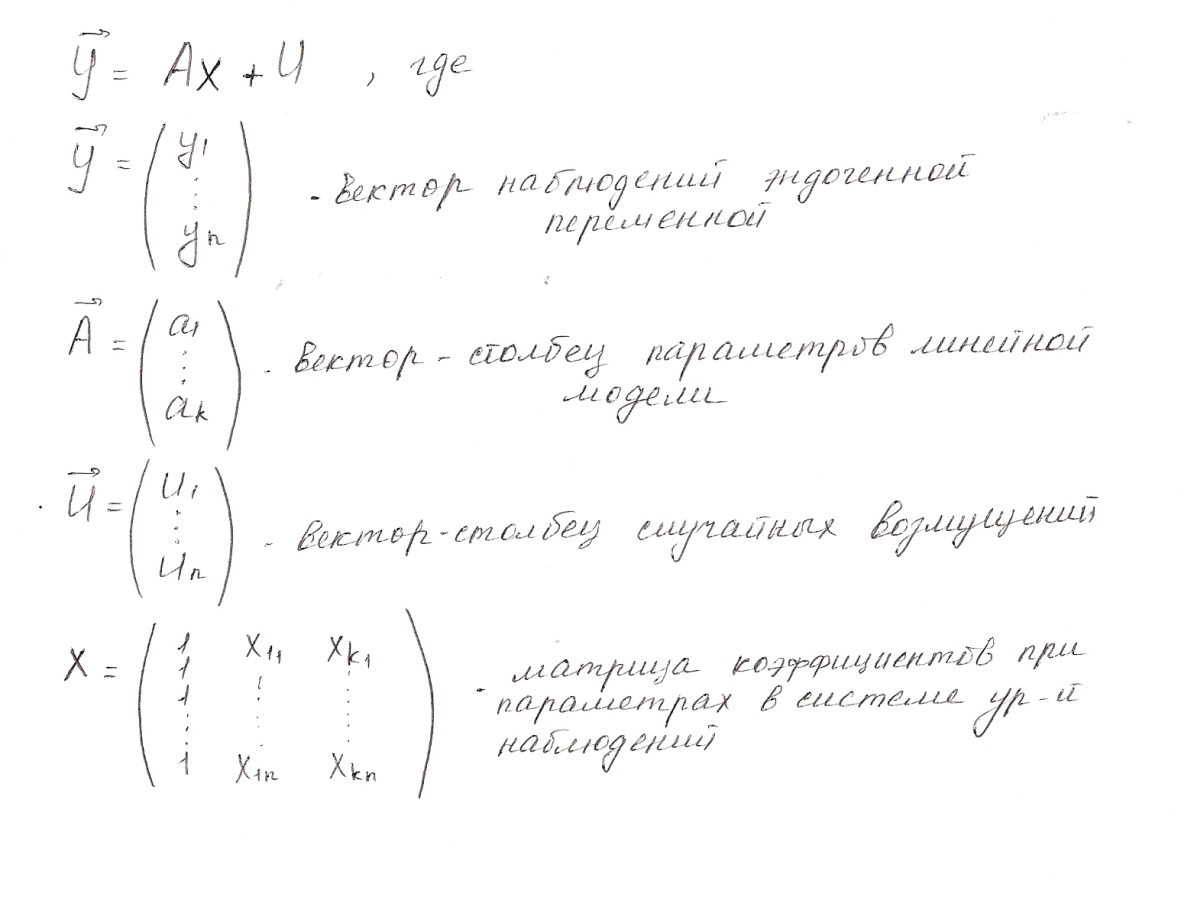 y⃗ = Ax + U , где
y⃗ = (y1 ⋮ yn) - вектор наблюдений эндогенной
переменной
A⃗ = (a1 ⋮ ak) - вектор-столбец параметров линейной
модели
U⃗ = (U1 ⋮ Un) - вектор-столбец случайных возмущений
X = (1 x11 xk1
1
1
⋮
1 x1n xkn) - матрица коэффициентов при
параметрах в системе ур-й
наблюдений